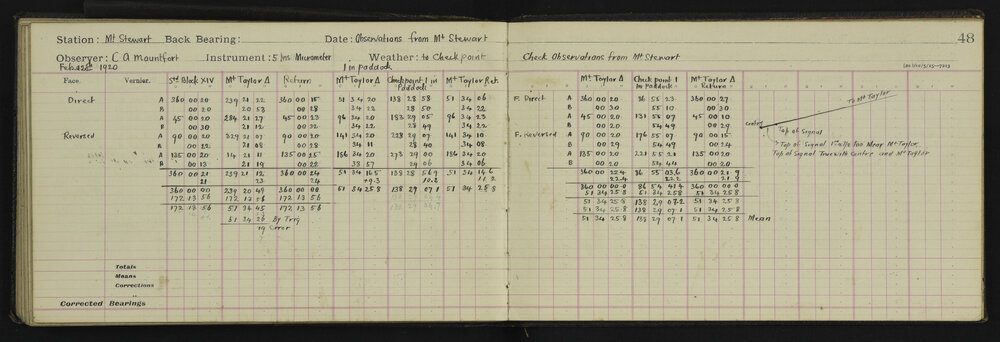 Station: Mt Stewart Back Bearing: Date: Observations from Mt Stewart
48
Observer: C A Mountfort Instrument: 5 ins Micrometer Weather: to Check point
Check Observations from Mt Stewart
1920 1 in paddock
Face. Vernier. Std Block XIV Mt Taylor Δ Return Mt Taylor Δ Checkpoint 1 in Paddock Mt Taylor Ret.
Mt Taylor Δ Check point 1 in Paddock Mt Taylor Δ Return
Direct A 360 00 20 239 21 22 360 00 15 51 34 20 138 28 58 51 34 06
F. Direct A 360 00 20 86 55 23 360 00 27
B 00 20 20 58 00 28 34 22 28 50 34 22
B 00 30 55 10 00 30
A 45 00 20 284 21 27 45 00 23 96 34 20 183 29 05 96 34 23
A 45 00 20 131 55 07 45 00 10
B 00 30 21 12 00 32 34 22 28 49 34 22
B 00 20 54 49 00 29
Reversed A 90 00 20 329 21 07 90 00 20 141 34 20 228 29 07 141 34 10
F. Reversed A 90 00 20 176 55 07 90 00 15
B 00 22 21 08 00 28 34 11 28 40 34 08
B 00 29 54 49 00 24
A 135 00 20 14 21 11 135 00 15 186 34 20 273 29 00 186 34 20
A 135 00 20 221 55 21 135 00 20
B 00 13 21 19 00 22 33 57 29 06 34 06
B 00 20 54 44 00 20
360 00 21 239 21 12 360 00 24 51 34 16.5 138 28 56.9 51 34 14.6
360 00 22.4 86 55 03.6 360 00 21.9
21 23 24 +9.3 10.2 11.2
22.4 22.2 21.9
360 00 00 239 20 49 360 00 00 51 34 25.8 138 29 07.1 51 34 25.8
360 00 00.0 86 54 41.4 360 00 00.0
172 13 56 172 13 56 172 13 56
51 34 25.8 51 34 25.8 51 34 25.8
172 13 56 51 34 45 172 13 56
51 34 25.8 138 29 07.2 51 34 25.8
51 34 26 By Trig
51 34 25.8 138 29 07.1 51 34 25.8
19 Error
51 34 25.8 138 29 07.1 51 34 25.8 Mean
To Mt Taylor
Center
Top of Signal
Top of Signal Truewith Center and Mt Taylor
Totals
Means
Corrections
Corrected Bearings